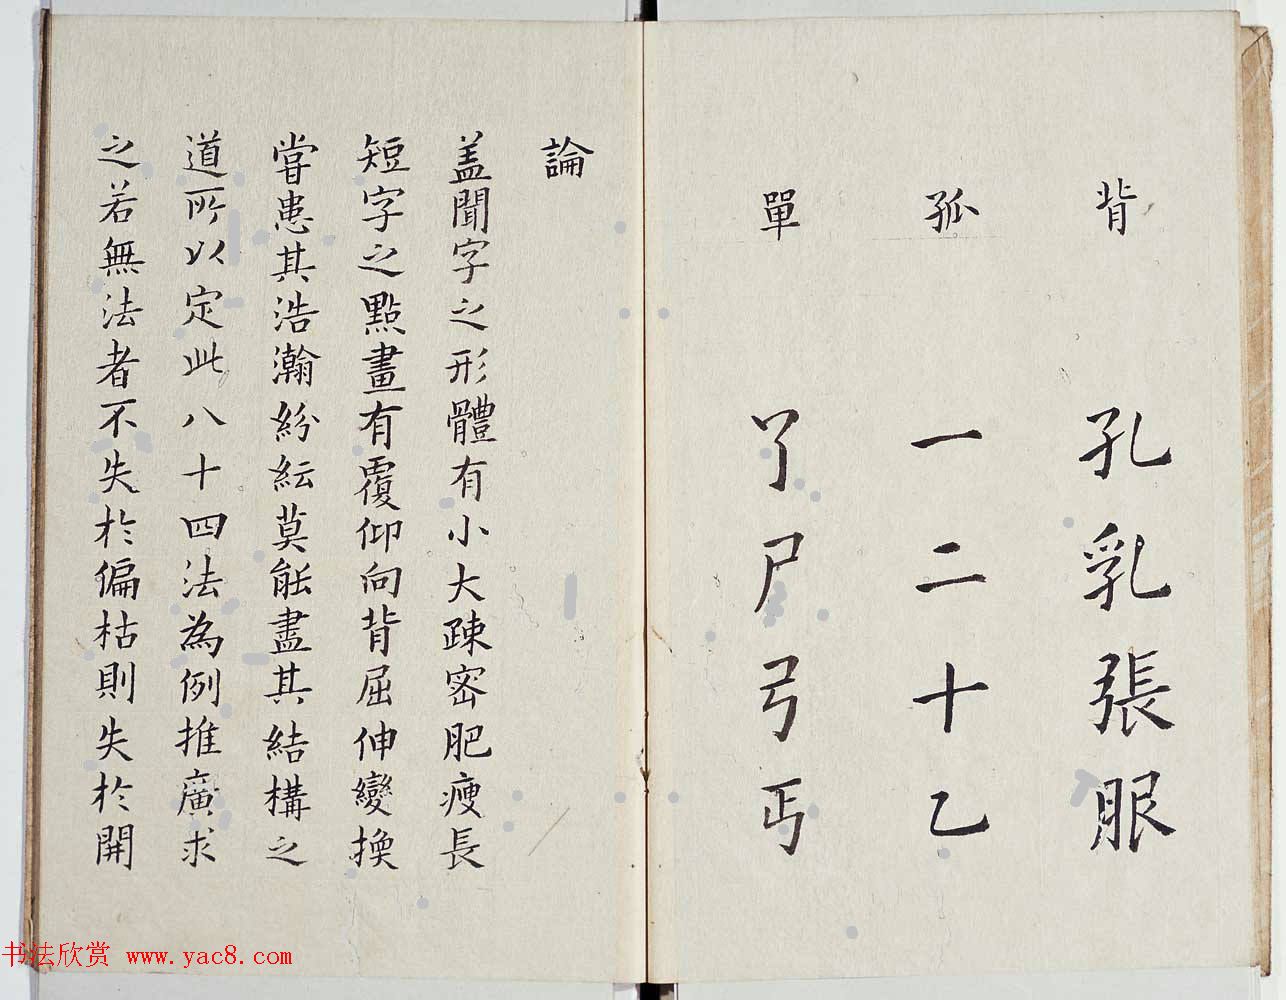 背 孔乳張服
孤 一二十乙
單 丫尸弓丐
論
盖聞字之形體有小大疎密肥瘦長
短字之點畫有覆仰向背屈伸變換
嘗患其浩瀚紛紜莫能盡其結構之
道所以定此八十四法為例推廣求
之若無法者不失於偏枯則失於開
书法欣赏 www.yac8.com